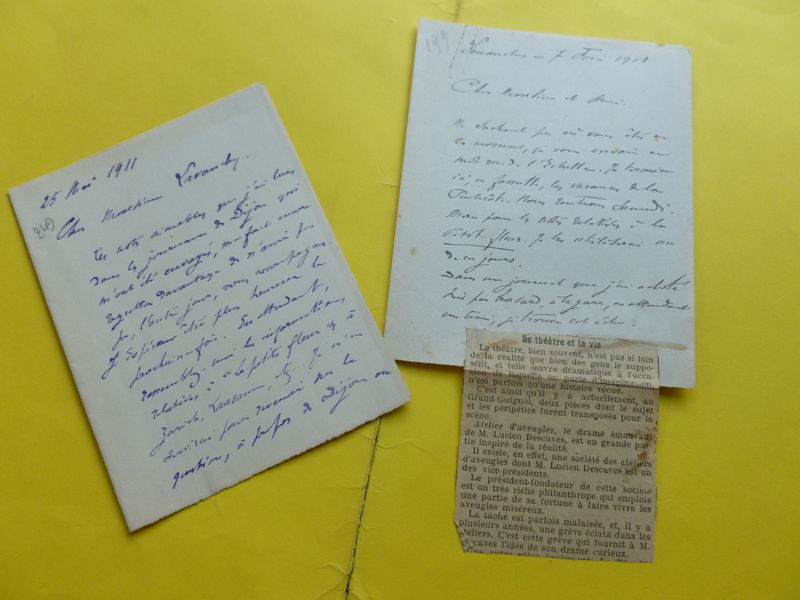 25 Mai 1911
249
Cher Monsieur Lavanchy.
Les notes aimables que j'ai lues
dans les journaux de Dijon qui
m'ont été envoyés, m'ont fait encore
regretter davantage de n'avoir pas
pu, l'autre jour, vous accompagner.
J'espère être plus heureux la
prochaine fois. En attendant,
rassemblez-moi les informations
relatives à "la petite fleur" de
Zurich, Lausanne,
pour revenir sur la
question, à propos de Dijon ou
199
7 Juin 1911
Cher Monsieur et Ami.
Ne sachant pas où vous êtes en
ce moment, je vous envoie un
mot rue de l'Echelle. Je termine
ici, en famille, les vacances de la
Pentecôte. Nous rentrons Samedi.
Merci pour les notes relatives à la
Petite fleur. Je les utiliserai un
de ces jours.
Dans un journal que j'ai acheté
hier par hasard, à la gare, en attendant
un train, je trouve cet écho :
Le théâtre et la vie
Le théâtre, bien souvent, n'est pas si loin
de la réalité que bien des gens le suppo-
sent, et telle œuvre dramatique à l'occa-
sion de laquelle on parle d'imagination,
n'est parfois qu'une histoire vécue.
C'est ainsi qu'il y a actuellement, au
Grand-Guignol, deux pièces dont le sujet
et les péripéties furent transposés pour la
scène.
Atelier d'aveugles, le drame émouvant
de M. Lucien Descaves, est en grande par-
tie inspiré de la réalité.
Il existe, en effet, une société des ateliers
d'aveugles dont M. Lucien Descaves est un
des vice-présidents.
Le président-fondateur de cette société
est un très riche philanthrope qui emploie
une partie de sa fortune à faire vivre les
aveugles miséreux.
La tâche est parfois malaisée, et, il y a
plusieurs années, une grève éclata dans les
ateliers. C'est cette grève qui fournit à M.
Descaves l'idée de son drame curieux.